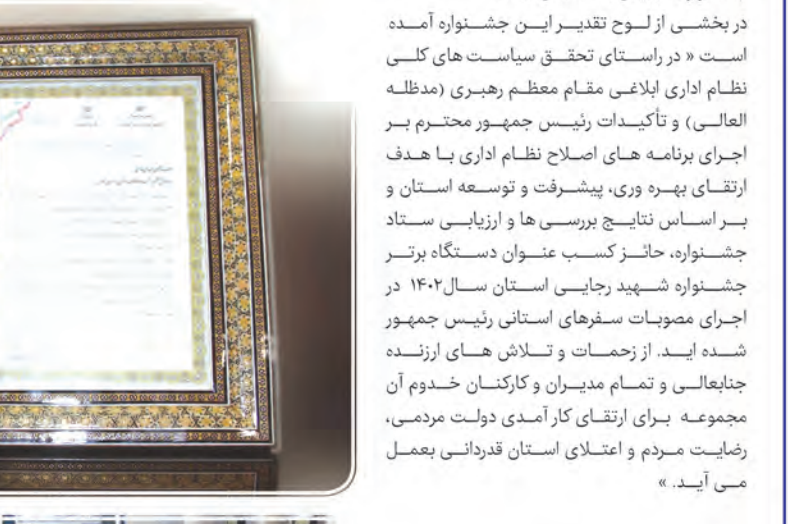 در بخشی از لوح تقدیر این جشنواره آمده
است « در راستای تحقق سیاست های کلی
نظام اداری ابلاغی مقام معظم رهبری (مدظله
العالی) و تأکیدات رئیس جمهور محترم بر
اجرای برنامه های اصلاح نظام اداری با هدف
ارتقای بهره وری، پیشرفت و توسعه استان و
بر اساس نتایج بررسی ها و ارزیابی ستاد
جشنواره، حائز کسب عنوان دستگاه برتر
جشنواره شهید رجایی استان سال۱۴۰۲ در
اجرای مصوبات سفرهای استانی رئیس جمهور
شده اید. از زحمات و تلاش های ارزنده
جنابعالی و تمام مدیران و کارکنان خدوم آن
مجموعه برای ارتقای کار آمدی دولت مردمی،
رضایت مردم و اعتلای استان قدردانی بعمل
می آید. »